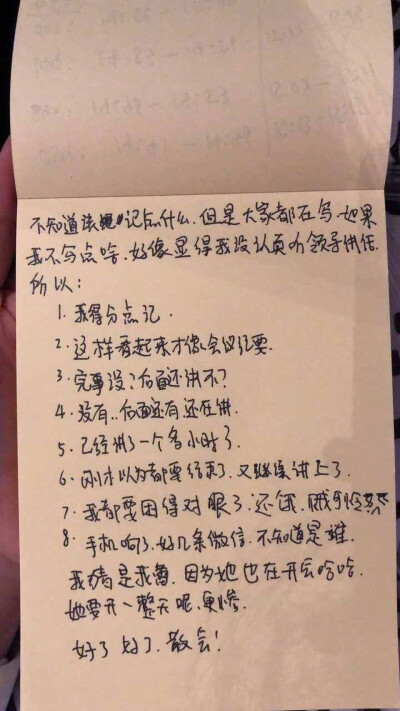 不知道该记点什么.但是大家都在写.如果
我不写点啥.好像显得我没认真听领导讲话.
所以:
1.我得分点记.
2.这样看起来才像会议纪要.
3.完事没?后面还讲不?
4.没有..后面还有还在讲.
5.已经讲了一个多小时了.
6.刚才以为都要结束了.又继续讲上了.
7.我都要困得对眼了.还饿.饿到
8.手机响了.好几条微信.不知道是谁.
我猜是我.因为她也在开会哈哈.
她要开一整天呢.更惨.
好了好了.散会!